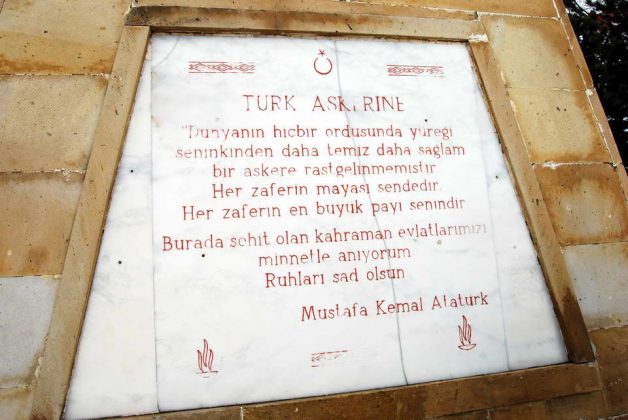 TURK ASKERINE
"Dunyanın hicbir ordusunda yüreği
seninkinden daha temiz daha sağlam
bir askere rastgelinmemistir.
Her zaferin mayası sendedir.
Her zaferin en buyuk payı senindir
Burada şehit olan kahraman evlatlarımızı
minnetle anıyorum
Ruhları sad olsun
Mustafa Kemal Ataturk